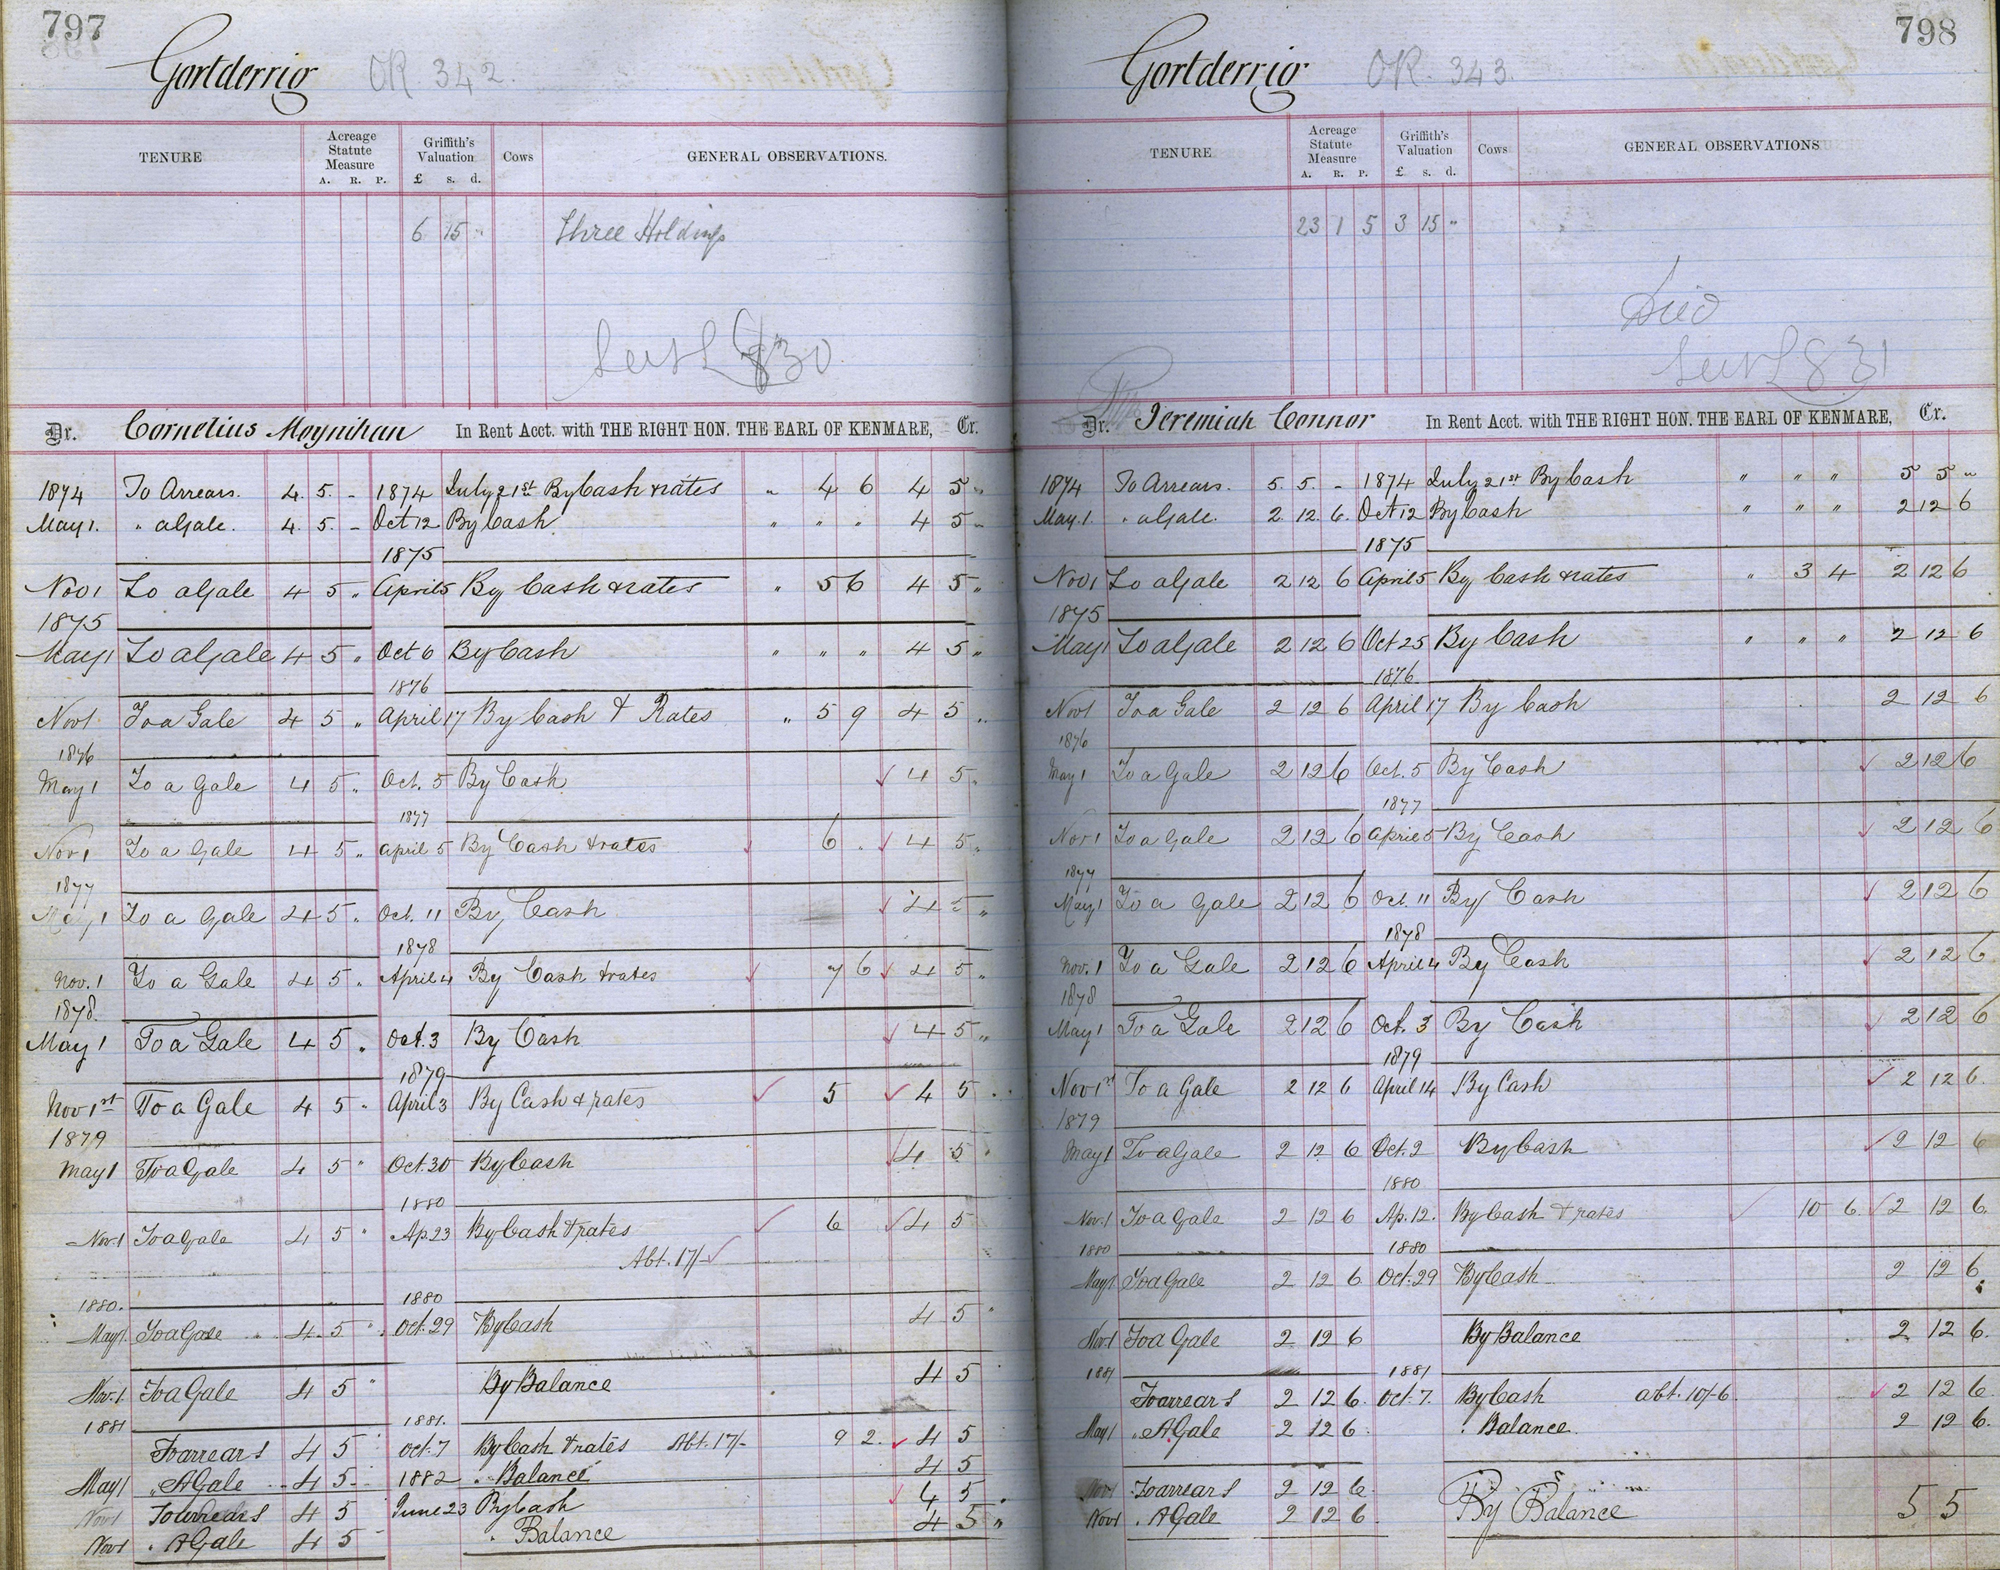 797
Gortderrig OR. 342.
TENURE Acreage Statute Measure A. R. P. Griffith's Valuation £ s. d. Cows GENERAL OBSERVATIONS.
6 15 " Three Holdings
830
Dr. Cornelius Moynihan In Rent Acct. with THE RIGHT HON. THE EARL OF KENMARE, Cr.
1874 To Arrears. 4. 5. - 1874 July 21st By Cash & rates " 4 6 4 5 "
May 1. " a Gale. 4. 5. - Oct 12 By Cash " " " 4 5 "
1875
Nov 1 To a Gale 4 5 " April 5 By Cash & rates " 5 6 4 5 "
1875
May 1 To a Gale 4 5 " Oct 6 By Cash " " " 4 5 "
1876
Nov 1 To a Gale 4 5 " April 17 By Cash & Rates " 5 9 4 5 "
1876
May 1 To a Gale 4 5 " Oct. 5 By Cash 4 5 "
1877
Nov 1 To a Gale 4 5 " April 5 By Cash & rates 6 . 4 5 "
1877
May 1 To a Gale 4 5 " Oct. 11 By Cash 4 5 "
1878
Nov. 1 To a Gale 4 5 " April 4 By Cash & rates 7 6 4 5 "
1878.
May 1 To a Gale 4 5 " Oct. 3 By Cash 4 5 "
1879
Nov 1st To a Gale 4 5 " April 3 By Cash & rates 5 4 5 "
1879
May 1 To a Gale 4 5 " Oct. 30 By Cash 4 5 "
1880
Nov. 1 To a Gale 4 5 " Ap. 23 By Cash & rates 6 4 5
Abt. 17/-
1880. 1880
May 1. To a Gale 4 5 " Oct. 29 By Cash 4 5 "
Nov. 1 To a Gale 4 5 " By Balance 4 5
1881 1881.
To arrears 4 5 " Oct. 7 By Cash & rates Abt. 17/- 9 2. 4 5
May 1 " A Gale 4 5 - 1882 " Balance 4 5
Nov 1 To arrears 4 5 June 23 By Cash 4 5 "
Nov 1 " A Gale 4 5 " Balance 4 5 "
798
Gortderrig OR. 343.
TENURE Acreage Statute Measure A. R. P. Griffith's Valuation £ s. d. Cows GENERAL OBSERVATIONS
23 1 5 3 15 "
831
Dr. Jeremiah Connor In Rent Acct. with THE RIGHT HON. THE EARL OF KENMARE, Cr.
1874 To Arrears. 5. 5. - 1874 July 21st By Cash " " " 5 5 "
May 1. " a Gale. 2. 12. 6. Oct 12 By Cash " " " 2 12 6
1875
Nov 1 To a Gale 2 12 6 April 5 By Cash & rates " 3 4 2 12 6
1875
May 1 To a Gale 2 12 6 Oct 25 By Cash " " " 2 12 6
1876.
Nov 1 To a Gale 2 12 6 April 17 By Cash 2 12 6
1876
May 1 To a Gale 2 12 6 Oct. 5 By Cash 2 12 6
1877
Nov 1 To a Gale 2 12 6 April 5 By Cash 2 12 6
1877
May 1 To a Gale 2 12 6 Oct. 11 By Cash 2 12 6
1878
Nov. 1 To a Gale 2 12 6 April 4 By Cash 2 12 6
1878
May 1 To a Gale 2 12 6 Oct. 3 By Cash 2 12 6
1879
Nov 1st To a Gale 2 12 6 April 14 By Cash 2 12 6.
1879
May 1 To a Gale 2 12 6 Oct. 2 By Cash 2 12 6
1880
Nov. 1 To a Gale 2 12 6 Ap. 12. By Cash & rates 10 6. 2 12 6.
1880 1880
May 1 To a Gale 2 12 6 Oct. 29 By Cash 2 12 6
Nov. 1 To a Gale 2 12 6 By Balance 2 12 6.
1881 1881
To arrears 2 12 6. Oct. 7. By Cash abt. 10/-6. 2 12 6.
May 1 " A Gale 2 12 6. " Balance. 2 12 6.
Nov 1 To arrears 2 12 6.
Nov 1 " A Gale 2 12 6. By Balance 5 5